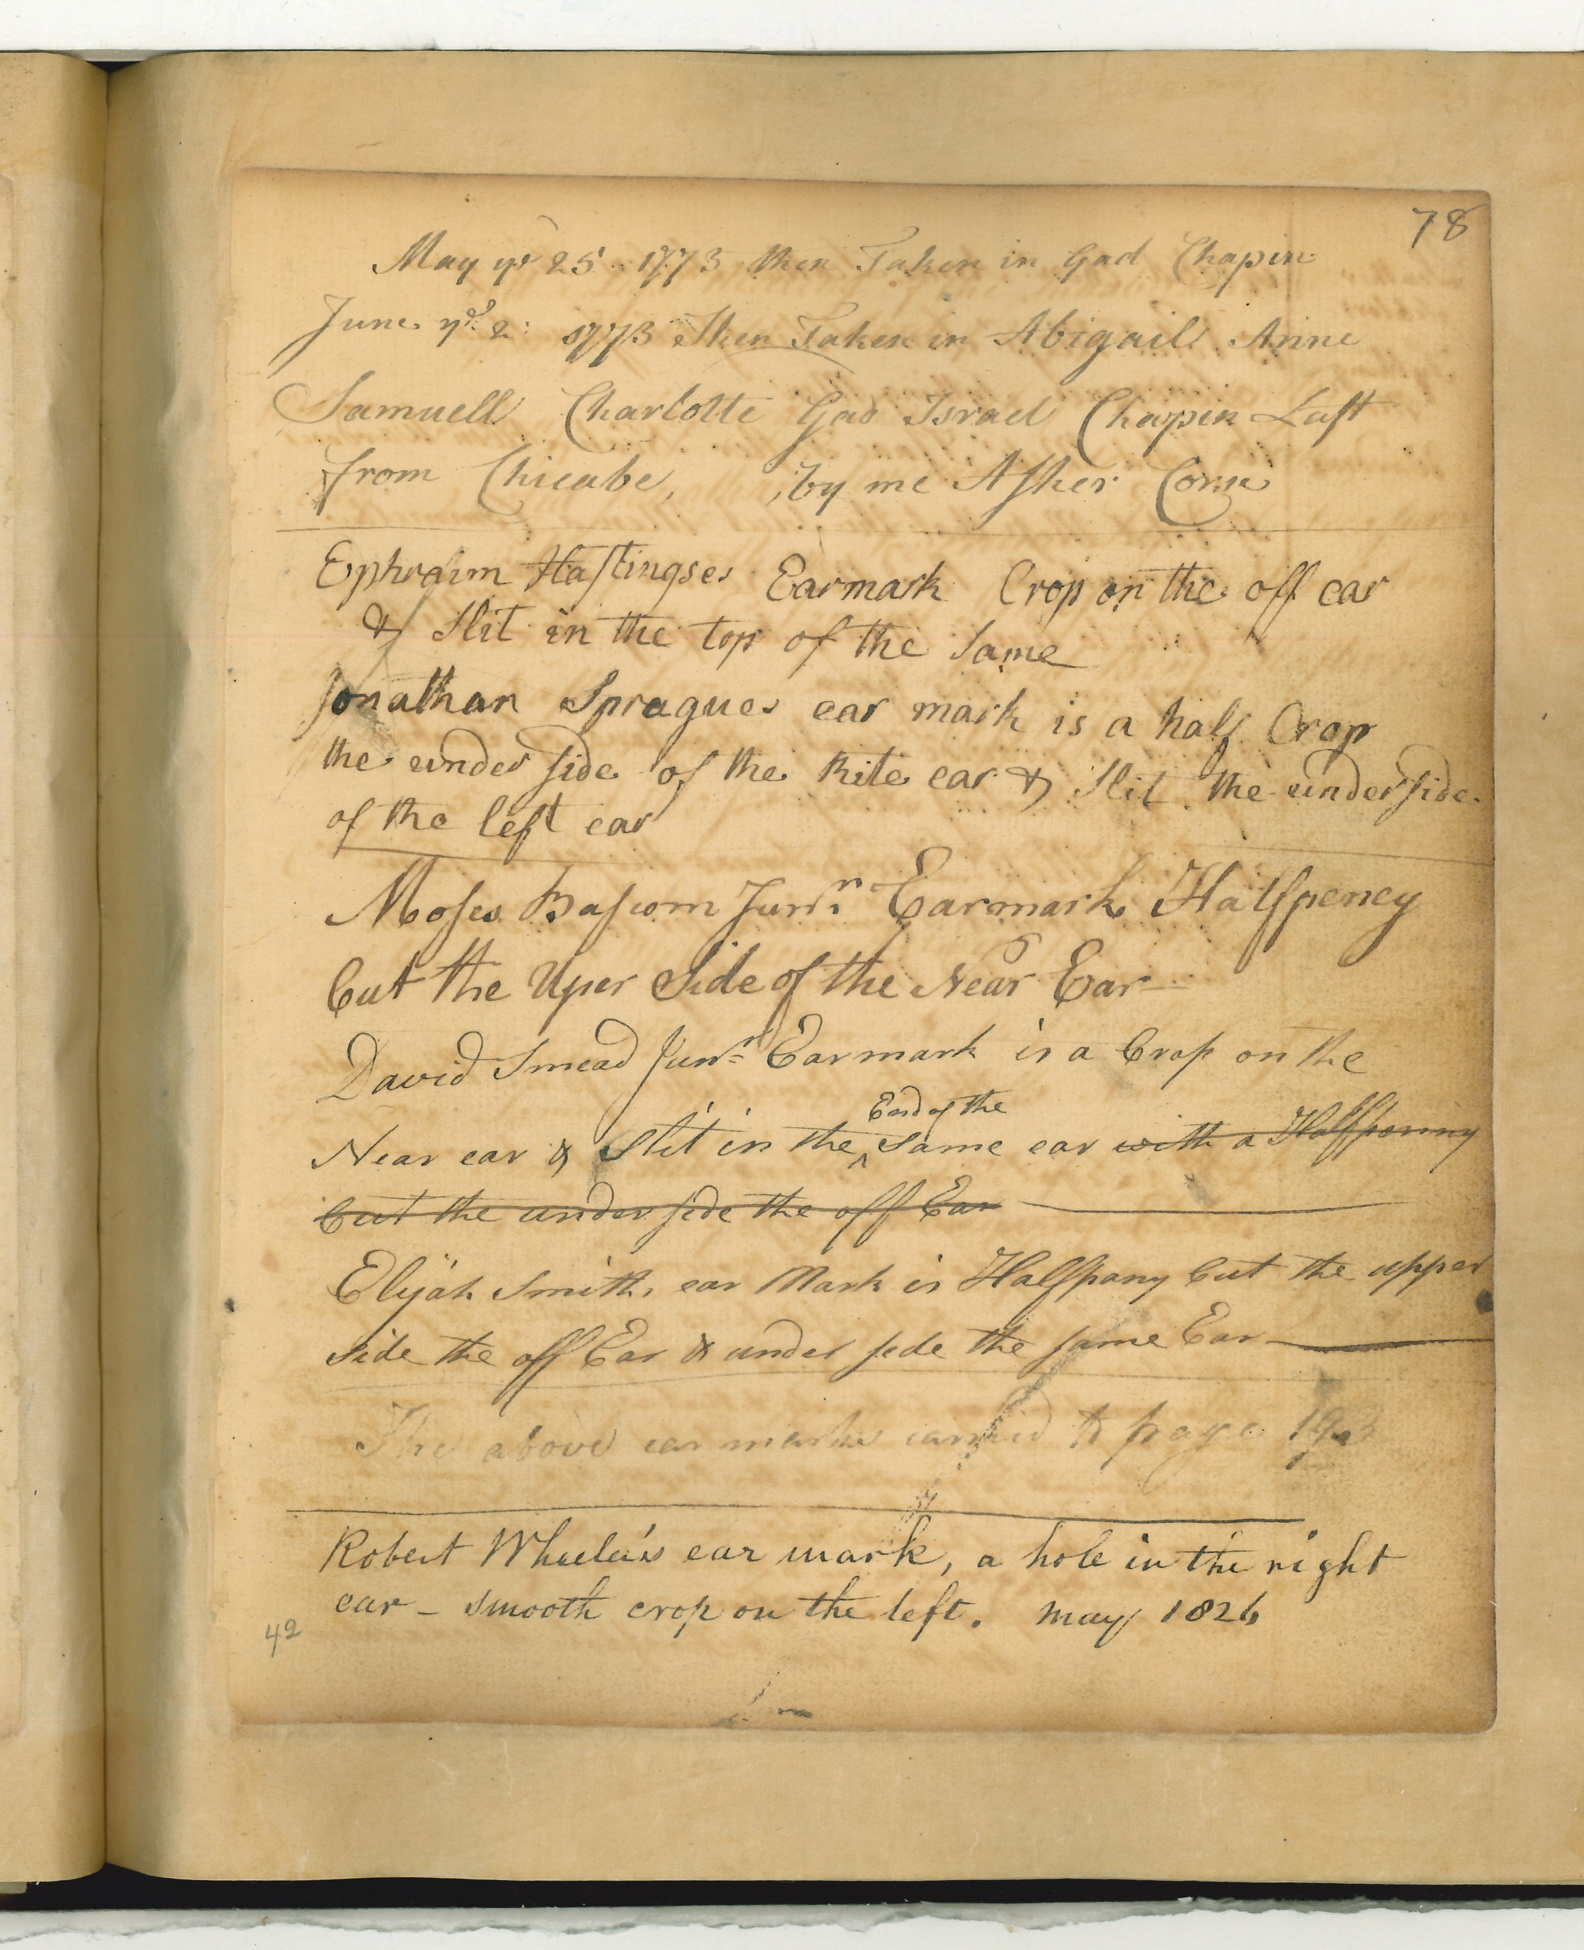 78
May ye 25 1773 then Taken in Gad Chapin
June ye 2: 1773 Then Taken in Abigail Anne
Samuell Charlotte Gad Israel Chapin Last
from Chicabe, by me Asher Corse
Ephraim Hastingses Earmark Crop on the off ear
& slit in the top of the Same
Jonathan Spragues ear mark is a half Crop
the under side of the Rite ear & slit the under side
of the left ear
Moses Bascom Junr Earmark Halfpeney
Cut the Uper Side of the Near Ear
David Smead Junr Earmark is a Crop on the
Near ear & Slit in the End of the Same ear with a Halfpenny
Cut the under side the off Ear
Elijah Smith ear Mark is Halfpany Cut the upper
side the off Ear & under side the same Ear
The above ear marks carried to page
Robert Wheeler's ear mark, a hole in the right
ear - smooth crop on the left. May 1826
42